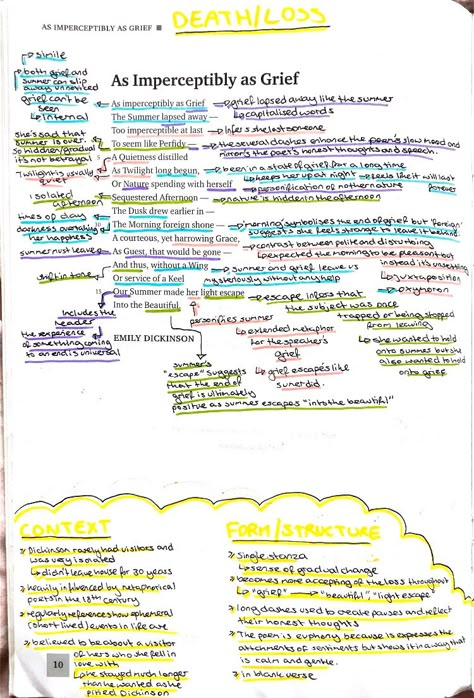 AS IMPERCEPTIBLY AS GRIEF ■
DEATH/LOSS
simile
both grief and
summer can slip
away unnoticed
grief can't be
seen
↳ internal
She's sad that
summer is over.
so hidden/gradual
it's not betrayal
Twilight is usually
quiet
isolated
afternoon
times of day
darkness overtaking
her happiness
summer must leave
soft in tone
Includes the
reader
the experience
of something coming
to an end is universal
As Imperceptibly as Grief
As imperceptibly as Grief
The Summer lapsed away —
Too imperceptible at last —
To seem like Perfidy —
5 A Quietness distilled
As Twilight long begun,
Or Nature spending with herself
Sequestered Afternoon —
The Dusk drew earlier in —
10 The Morning foreign shone —
A courteous, yet harrowing Grace,
As Guest, that would be gone —
And thus, without a Wing
Or service of a Keel
15 Our Summer made her light escape
Into the Beautiful.
EMILY DICKINSON
grief lapsed away like the summer
↳ capitalised words
Infers she lost someone
the several dashes enhance the poem's slow mood and
mirrors the poet's honest thoughts and speech.
been in a state of grief for a long time
↳ keeps her up at night
feels like it will last
forever
personification of mother nature
nature is hidden in the afternoon
morning symbolises the end of grief but 'foreign'
suggests she feels strange to leave it behind
contrast between polite and disturbing
↳ expected the morning to be pleasant but
instead it's unsettling
↳ juxtaposition
↳ oxymoron
summer and grief leave us
mysteriously without any help
escape infers that
the subject was once
trapped or being stopped
from leaving
↳ she wanted to hold
onto summer but she
also wanted to hold
onto grief
personifies summer
↳ extended metaphor
for the speaker's
grief
↳ grief escapes like
summer did.
summer's
"escape" suggests
that the end of
grief is ultimately
positive as summer escapes "into the beautiful"
CONTEXT
» Dickinson rarely had visitors and
was very isolated
↳ didn't leave house for 30 years
» heavily influenced by metaphorical
poets in the 18th century
» regularly references how ephemeral
(short lived) events in life are
» believed to be about a visitor
of hers who she fell in
love with
↳ she stayed much longer
than he wanted as he
pitied Dickinson
FORM/STRUCTURE
» single stanza
↳ sense of gradual change
» becomes more accepting of the loss throughout
↳ "grief" → "beautiful", "light escape"
» long dashes used to create pauses and reflect
their honest thoughts
» The poem is euphony because is expresses the
attachments of sentiments but shows it a way that
is calm and gentle.
» in blank verse
10